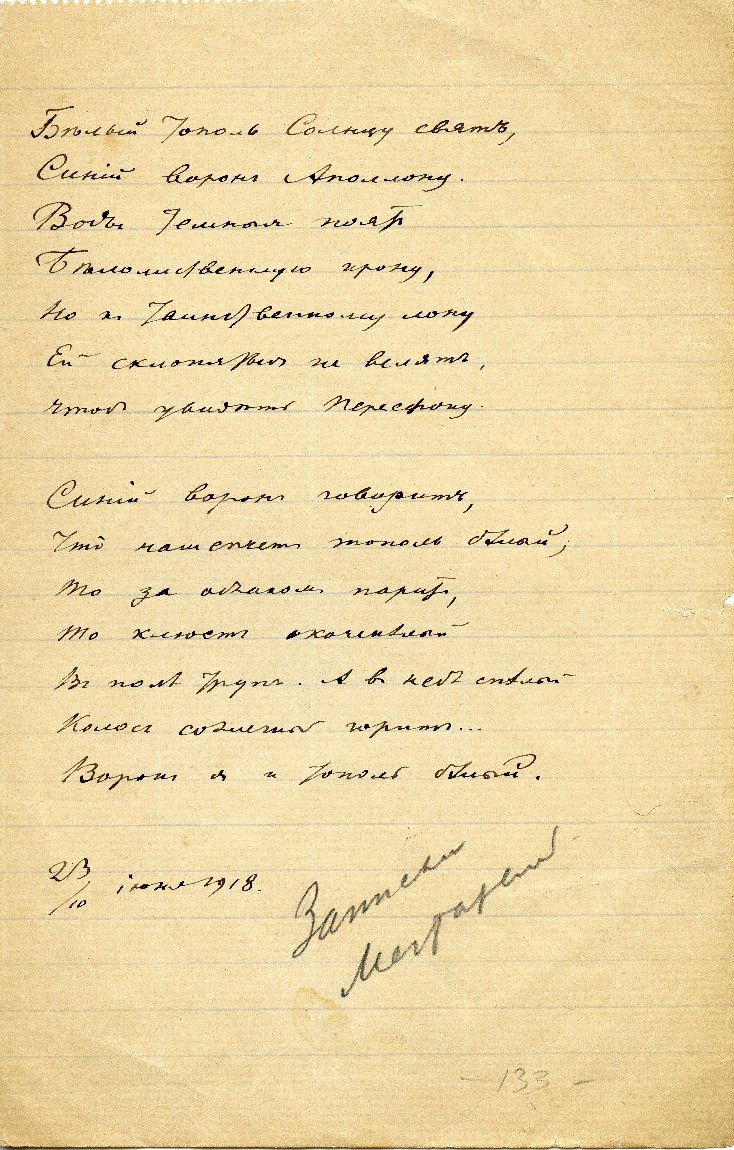 Бѣлый Тополь Солнцу святъ,
Синій воронъ Аполлону.
Воды темныя поятъ
Бѣлолиственную крону,
Но къ таинственному лону
Ей склоняться не велятъ,
Чтобъ увидѣть Персефону.
Синій воронъ говоритъ,
Что нашепчетъ тополь бѣлый,
То за облакомъ паритъ,
То клюетъ окоченѣлый
Въ полѣ трупъ. А въ небѣ спѣлый
Колосъ солнечный горитъ...
Воронъ я и тополь бѣлый.
23/10 іюня 1918.
Записки
- 133 -